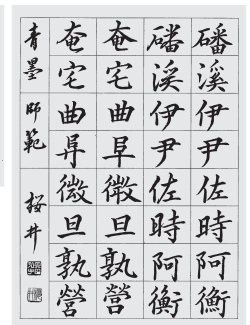 磻溪伊尹佐時阿衡
磻溪伊尹佐時阿衡
奄宅曲阜微旦孰營
奄宅曲阜微旦孰營
青墨師範 桜井